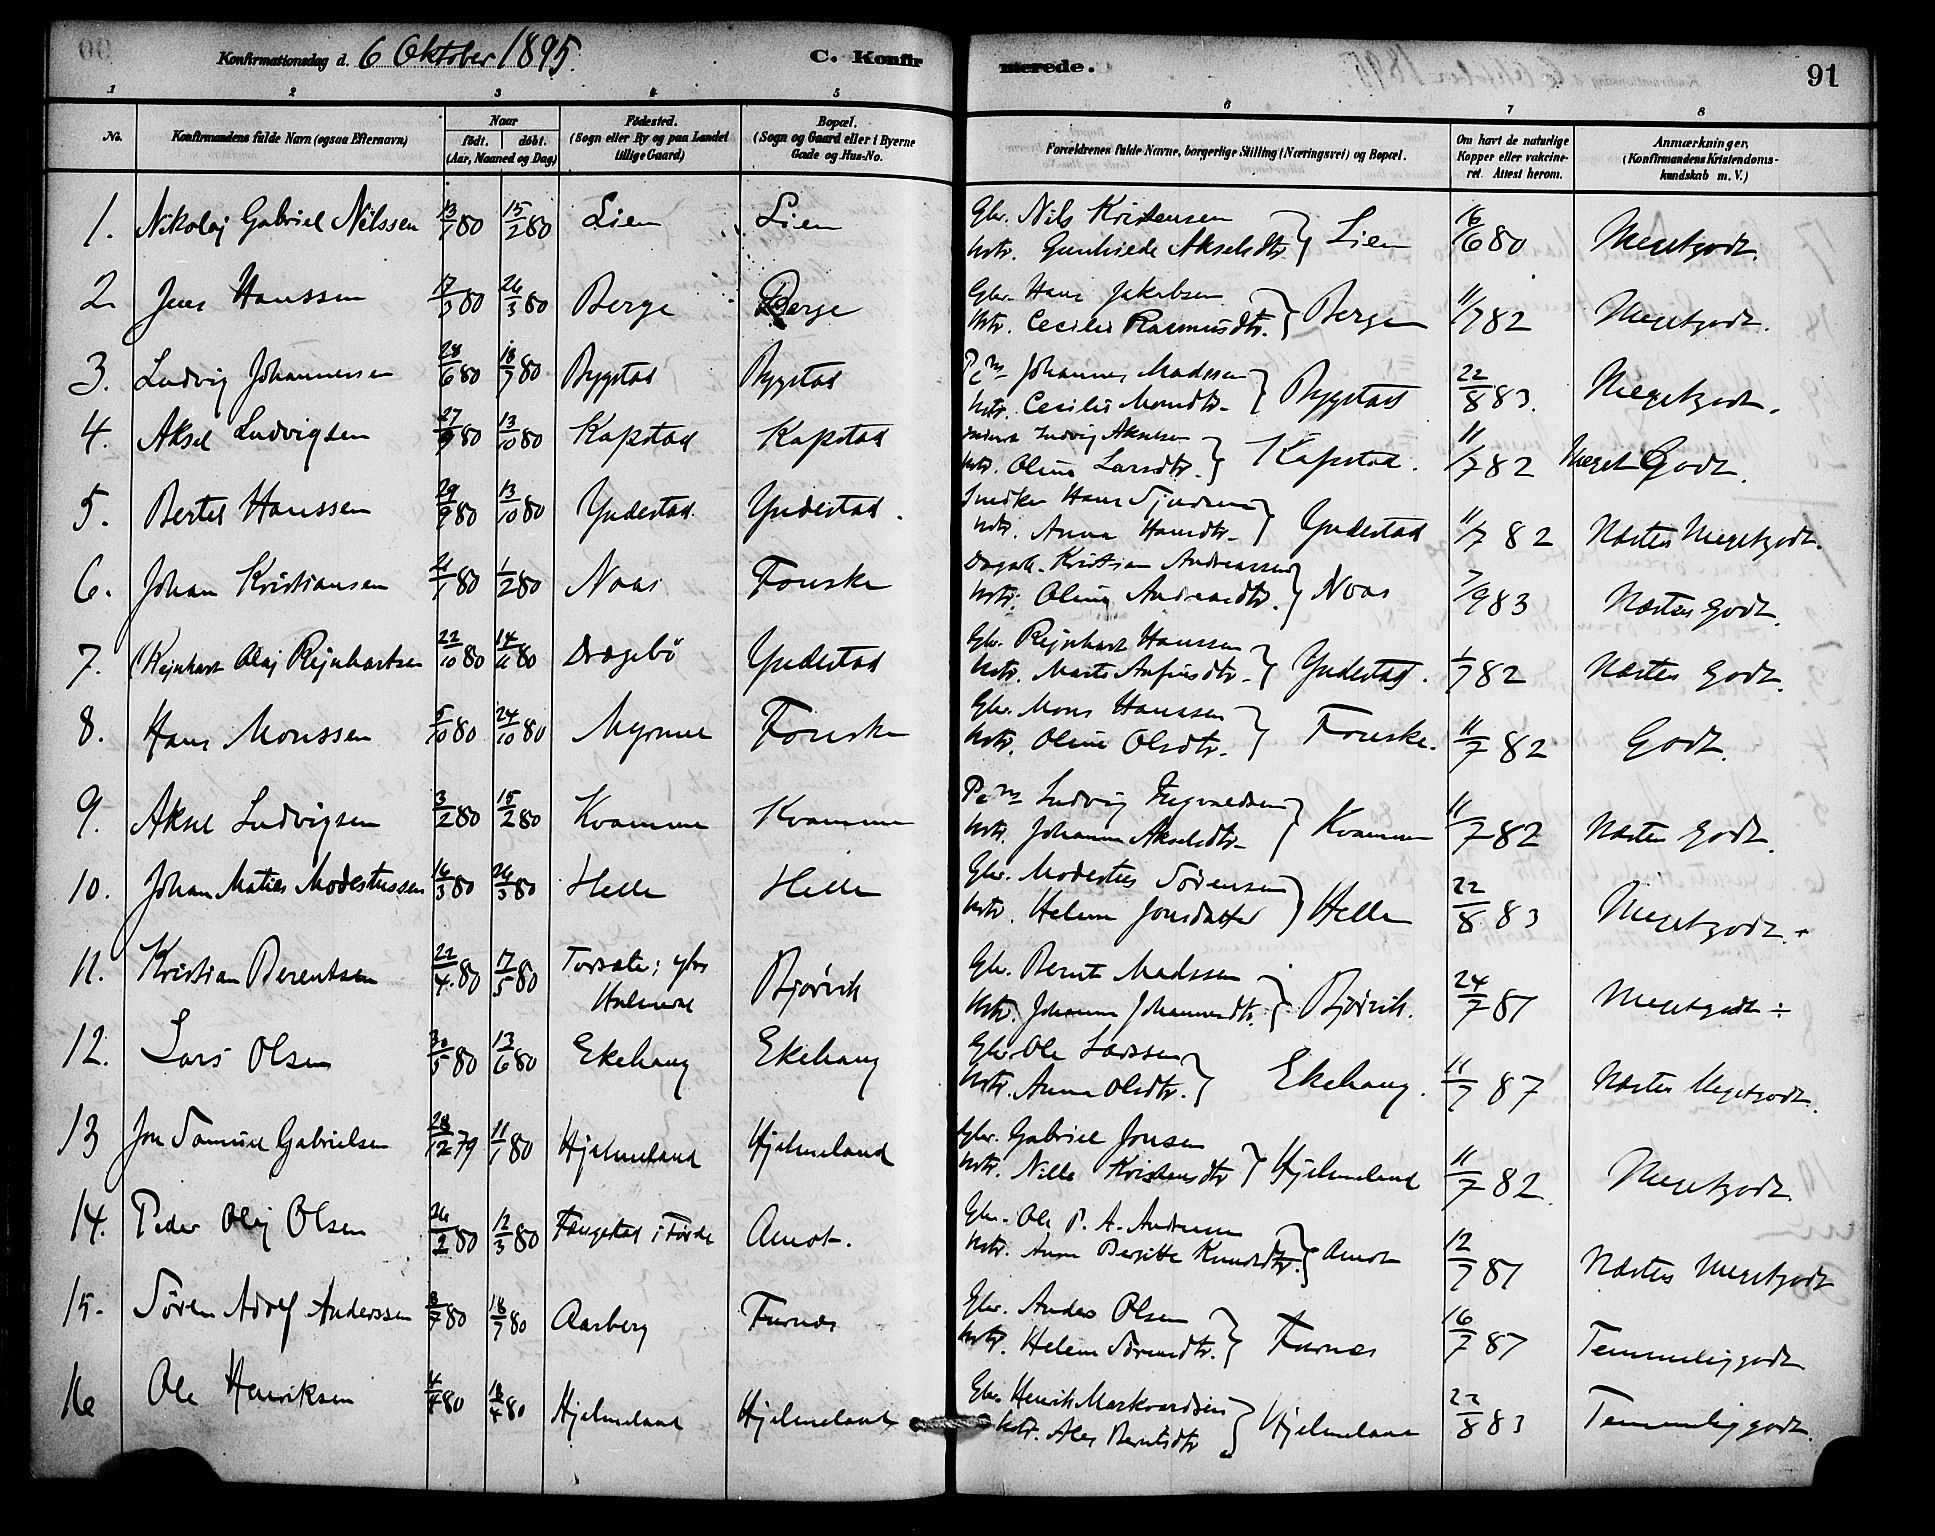 Konfirmationsdag d. 6 Oktober 1895.
C. Konfirmerede.
91
1 2 3 4 5 6 7 8
No. Konfirmandens fulde Navn (ogsaa Efternavn) Naar født. døbt. (Aar, Maaned og Dag) Fødested. (Sogn eller By og paa Landet tillige Gaard) Bopæl. (Sogn og Gaard eller i Byerne Gade og Hus-No. Forældrenes fulde Navne, borgerlige Stilling (Næringsvei) og Bopæl. Om havt de naturlige Kopper eller vaccineret. Attest herom. Anmærkninger. (Konfirmandens Kristendomskundskab m. V.)
1. Nikolaj Gabriel Nilssen 13/1 80 15/2 80 Lien Lien Gbr. Nils Kristensen
Hstr. Gunhilde Akselsdtr. } Lien 16/6 80 Megetgodt.
2. Jens Hanssen 17/3 80 26/3 80 Berge Berge Gbr. Hans Jakobsen
Hstr. Cecilie Rasmusdtr. } Berge 11/7 82 Megetgodt.
3. Ludvig Johannessen 28/6 80 18/7 80 Bygstad Bygstad Pcm Johannes Madssen
Hstr. Cecilie Monsdtr. } Bygstad 22/8 83. Megetgodt.
4. Aksel Ludvigsen 27/9 80 13/10 80 Kapstad Kapstad Ludvig Akselsen
Hstr. Oline Larsdtr. } Kapstad. 11/7 82 Meget Godt.
5. Bertel Hanssen 29/9 80 13/10 80 Yndestad Yndestad. Snedker Hans
Hstr. Anna Hansdtr. } Yndestad 11/7 82 Næsten Megetgodt.
6. Johan Kristiansen 21/1 80 1/2 80 Naas Fonske Kristian Andreassen
Hstr. Oline Andreasdtr. } Naas 7/9 83 Næsten godt.
7. Rejnhart Olaj Rejnhartsen 22/10 80 14/11 80 Dragebö Yndestad Gbr. Rejnhart Hanssen
Hstr. Marte Anfinsdtr. } Yndestad. 1/7 82 Næsten Godt.
8. Hans Monssen 5/10 80 24/10 80 Myrene Fonske Gbr. Mons Hanssen
Hstr. Oline Olsdtr. } Fonske. 11/7 82 Godt.
9. Aksel Ludvigsen 3/2 80 15/2 80 Kvamme Kvamme Pcm Ludvig Ingvaldsen
Hstr. Johanne Akselsdtr. } Kvamme 11/7 82 Næsten Godt.
10. Johan Matias Modestussen 16/3 80 26/3 80 Helle Helle Gbr. Modestus Sörensen
Hstr. Helene Jonsdatter } Helle 22/8 83 Megetgodt. +
11. Kristian Berentsen 22/4 80 17/5 80 Bjørvik Gbr. Bernt Madssen
Hstr. Johanne Johannesdtr. } Bjørvik. 24/7 81 Megetgodt ÷
12. Lars Olsen 30/5 80 13/6 80 Ekehaug Ekehaug Gbr. Ole Larssen
Hstr. Anna Olsdtr. } Ekehaug. 11/7 87 Næsten Megetgodt.
13 Jon Samuel Gabrielsen 28/12 79 11/1 80 Hjelmeland Hjelmeland Gbr. Gabriel Jonsen
Hstr. Nille Kristensdtr } Hjelmeland 11/7 82. Megetgodt.
14. Peder Olaj Olsen 26/2 80 12/3 80 Fængestad i Førde Amot. Gbr. Ole P. A. Andersen
Hstr. Anne Bergitte Knudsdtr. } Amot 12/7 81 Næsten Megetgodt
15. Søren Adolf Anderssen 8/7 80 18/7 80 Aarberg Furnes Gbr. Anders Olsen
Hstr. Helene Sørensdtr. } Furnes 16/7 87 Temmeliggodt
16 Ole Henriksen 4/4 80 18/4 80 Hjelmeland Hjelmeland Gbr. Henrik Markvardsen
Hstr. Ales Berntsdtr } Hjelmeland 22/8 83 Temmeliggodt.